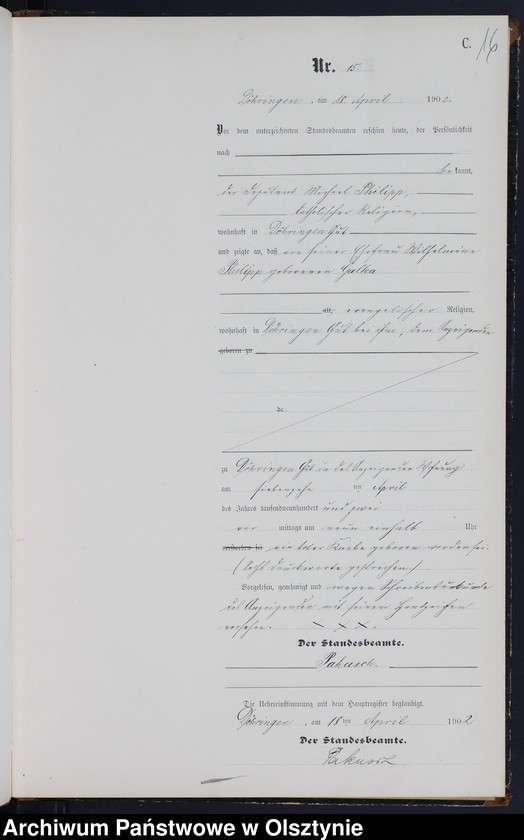 C. 16
Nr. 15.
Döhringen, am 18. April 1902.
Vor dem unterzeichneten Standesbeamten erschien heute, der Persönlichkeit
nach
bekannt,
der Deputant Michael Philipp,
katholischer Religion,
wohnhaft in Döhringen Gut
und zeigte an, daß von seiner Ehefrau Wilhelmine
Philipp geborenen Galka
alt, evangelischer Religion,
wohnhaft in Döhringen Gut bei ihm, dem Anzeigenden
geboren zu
de
zu Döhringen Gut in des Anzeigenden Wohnung
am siebenzehn ten April
des Jahres tausendneunhundert und zwei
vor mittags um neun einhalb Uhr
verstorben sei ein todter Knabe geboren worden sei.
(Sechs Druckworte gestrichen.)
Vorgelesen, genehmigt und wegen Schreibensunkunde
des Anzeigenden mit seinem Handzeichen
versehen. x x x.
Der Standesbeamte.
Die Uebereinstimmung mit dem Hauptregister beglaubigt.
Döhringen, am 18ten April 1902
Der Standesbeamte.
Archiwum Państwowe w Olsztynie